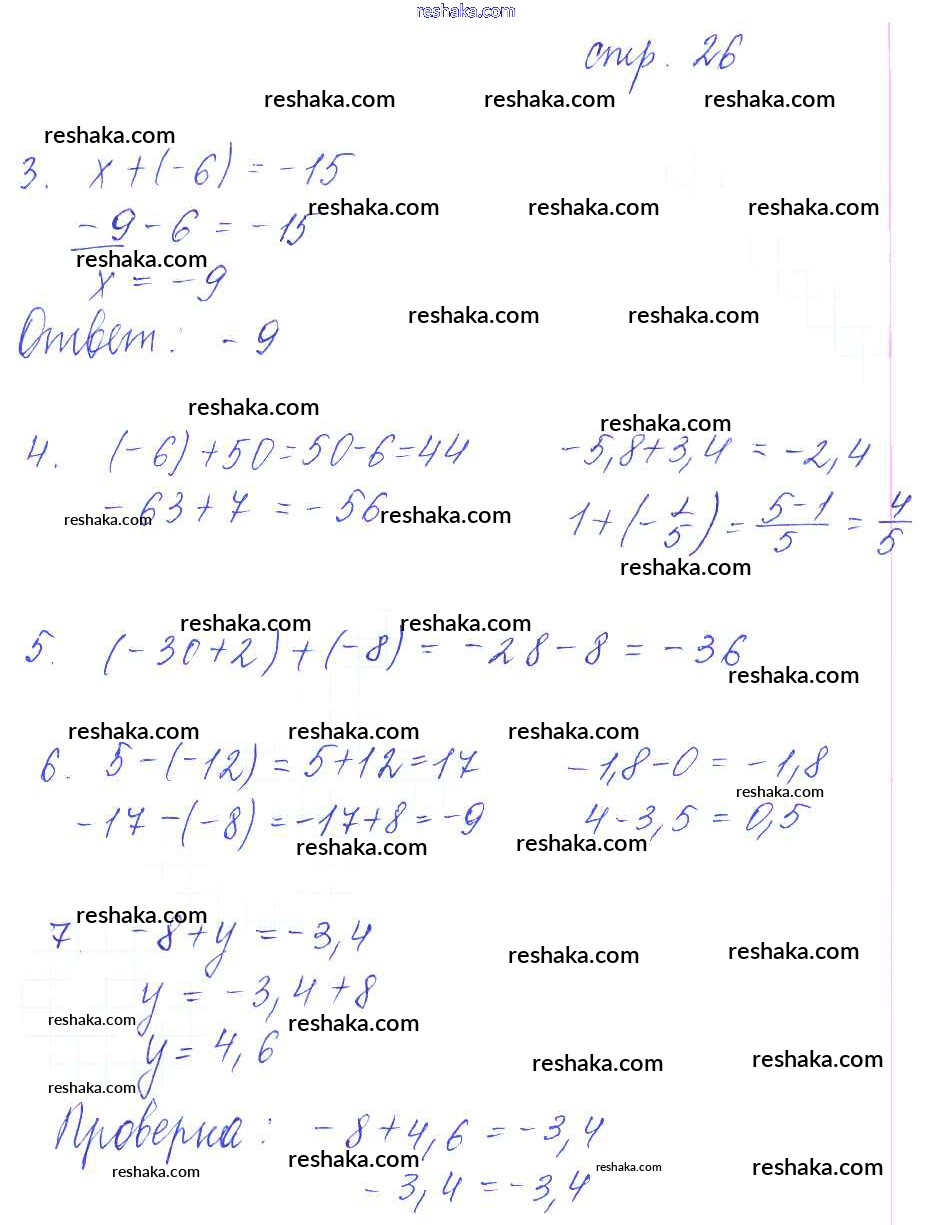 reshaka.com
стр. 26
reshaka.com reshaka.com reshaka.com
reshaka.com
3. x + (-6) = -15
reshaka.com reshaka.com reshaka.com
-9 - 6 = -15
reshaka.com
x = -9
reshaka.com reshaka.com
Ответ: -9
reshaka.com
reshaka.com
4. (-6) + 50 = 50 - 6 = 44 -5,8 + 3,4 = -2,4
-63 + 7 = -56 1 + (-1/5) = (5-1)/5 = 4/5
reshaka.com reshaka.com
reshaka.com
reshaka.com reshaka.com
5. (-30 + 2) + (-8) = -28 - 8 = -36
reshaka.com
reshaka.com reshaka.com reshaka.com
6. 5 - (-12) = 5 + 12 = 17 -1,8 - 0 = -1,8
reshaka.com
-17 - (-8) = -17 + 8 = -9 4 - 3,5 = 0,5
reshaka.com reshaka.com
reshaka.com
7. -8 + y = -3,4
reshaka.com reshaka.com
y = -3,4 + 8
reshaka.com reshaka.com
y = 4,6
reshaka.com reshaka.com
reshaka.com
Проверка: -8 + 4,6 = -3,4
reshaka.com reshaka.com reshaka.com reshaka.com
-3,4 = -3,4